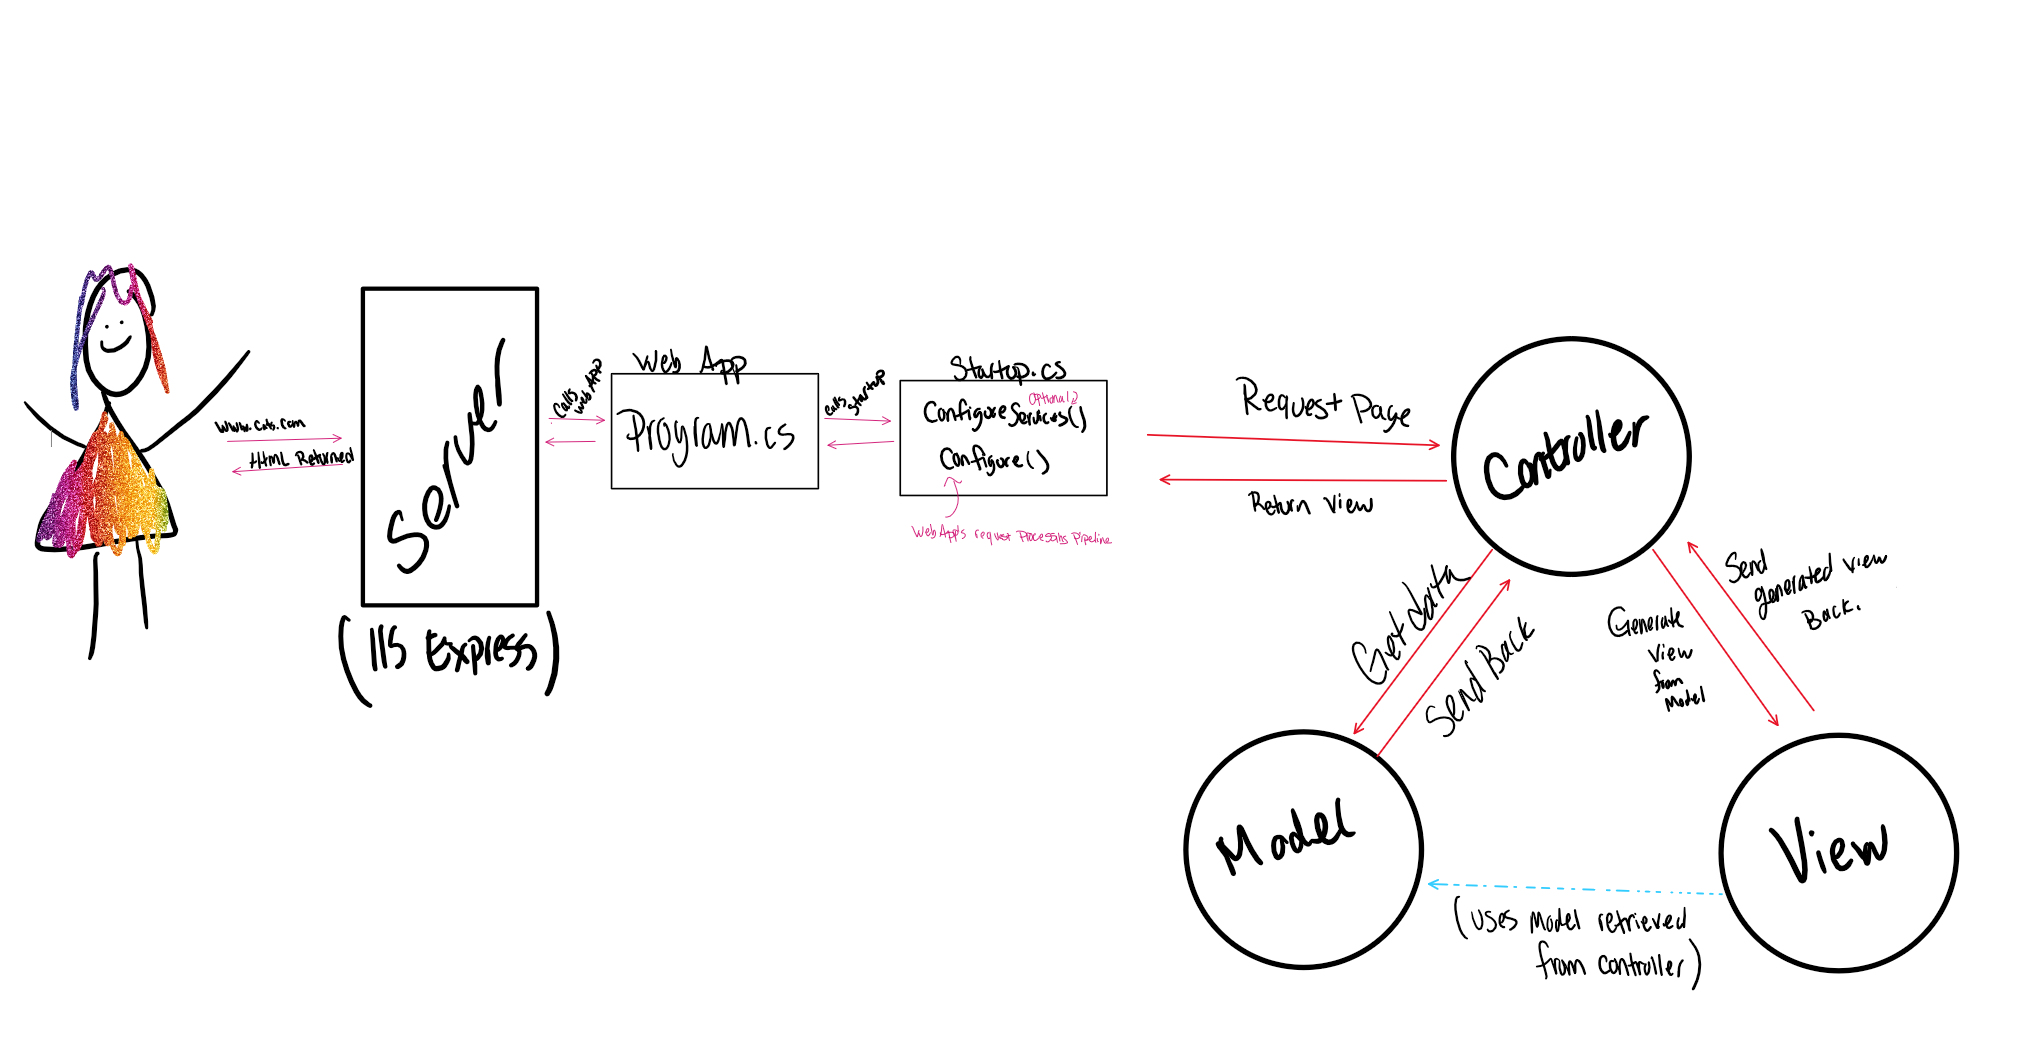 www.cats.com
HTML Returned
Server
(IIS Express)
Calls
Web App
Web App
Program.cs
Calls
Startup
Startup.cs
Optional
ConfigureServices()
Configure()
Web App's request Processing Pipeline
Request Page
Return View
Controller
Get data
Send Back
Generate
View
from
Model
Send
generated view
Back.
Model
View
(Uses Model retrieved
from controller)